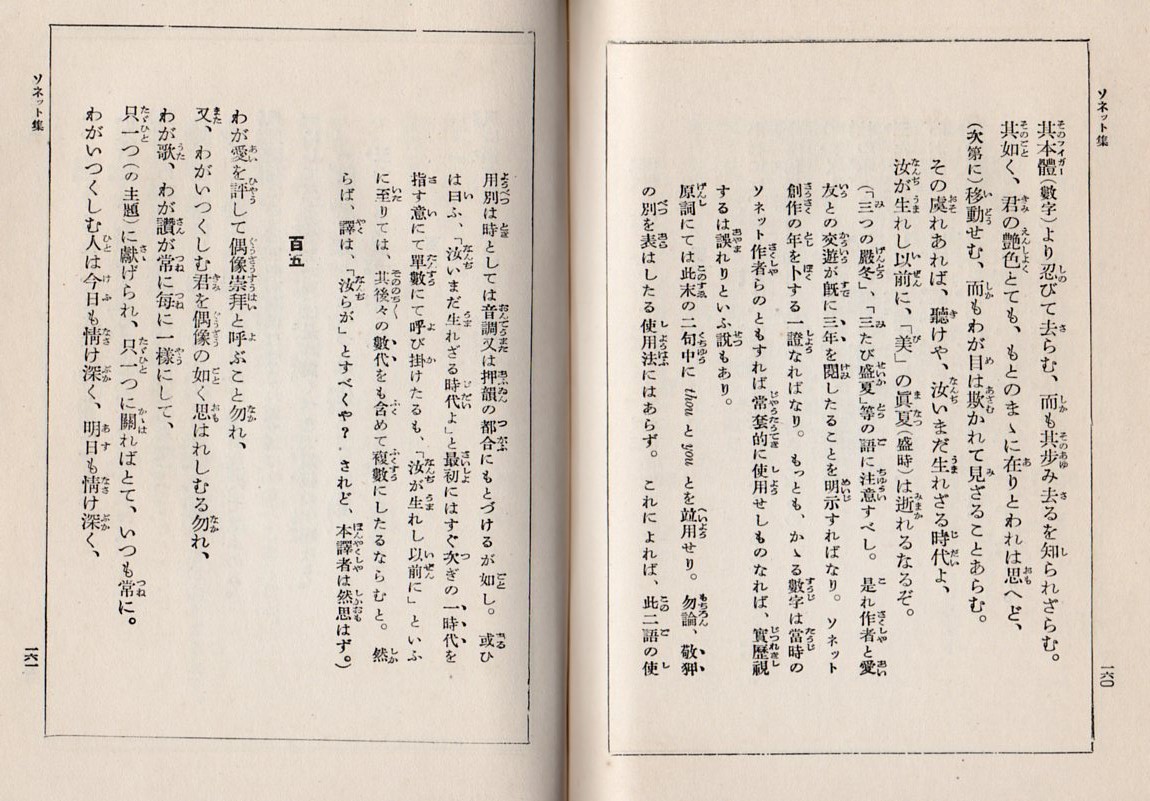 ソネット集
一六〇
其本體(數字)より忍びて去らむ、而も其步み去るを知られざらむ。
其如く、君の艶色とても、もとのまゝに在りとわれは思へど、
(次第に)移動せむ、而もわが目は欺かれて見ざることあらむ。
その虞れあれば、聽けや、汝いまだ生れざる時代よ、
汝が生れし以前に、「美」の眞夏(盛時)は逝れるなるぞ。
(「三つの嚴冬」、「三たび盛夏」等の語に注意すべし。是れ作者と愛
友との交遊が既に三年を閲したることを明示すればなり。ソネット
創作の年を卜する一證なればなり。もっとも、かゝる數字は當時の
ソネット作者らのともすれば常套的に使用せしものなれば、實歷視
するは誤れりといふ說もあり。
原詞にては此末の二句中に thou と you とを竝用せり。勿論、敬狎
の別を表はしたる使用法にはあらず。これによれば、此二語の使
用別は時としては音調又は押韻の都合にもとづけるが如し。或ひ
は曰ふ、「汝いまだ生れざる時代よ」と最初にはすぐ次ぎの一時代を
指す意にて單數にて呼び掛けたるも、「汝が生れし以前に」といふ
に至りては、其後々の數代をも含めて複數にしたるならむと。然
らば、譯は、「汝らが」とすべくや?されど、本譯者は然思はず。)
百五
わが愛を評して偶像崇拜と呼ぶこと勿れ、
又、わがいつくしむ君を偶像の如く思はれしむる勿れ、
わが歌、わが讚が常に每に一樣にして、
只一つ(の主題)に獻げられ、只一つに關ればとて、いつも常に。
わがいつくしむ人は今日も情け深く、明日も情け深く、
ソネット集
一六一